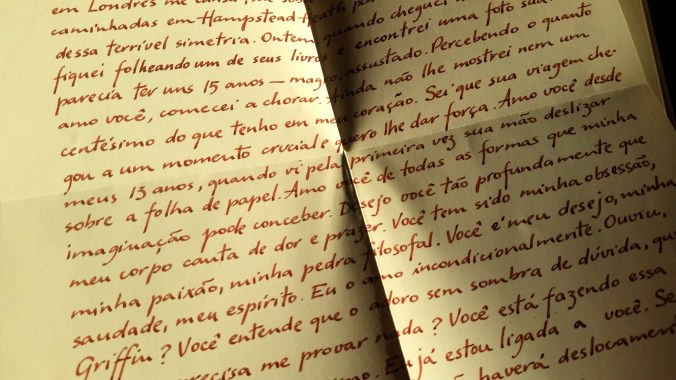 em Londres me
caminhadas em Hampstead Heath por
dessa terrível simetria. Ontem, quando cheguei
fiquei folheando um de seus livros e encontrei uma foto sua.
parecia ter uns 15 anos — magro, assustado. Percebendo o quanto
amo você, comecei a chorar. Ainda não lhe mostrei nem um
centésimo do que tenho em meu coração. Sei que sua viagem che-
gou a um momento crucial e quero lhe dar força. Amo você desde
meus 13 anos, quando vi pela primeira vez sua mão deslizar
sobre a folha de papel. Amo você de todas as formas que minha
imaginação pode conceber. Desejo você tão profundamente que
meu corpo canta de dor e prazer. Você tem sido minha obsessão,
minha paixão, minha pedra filosofal. Você é meu desejo, minha
saudade, meu espírito. Eu o amo incondicionalmente. Ouviu,
Griffin? Você entende que o adoro sem sombra de dúvida, que
precisa me provar nada? Você está fazendo essa
Eu já estou ligada a você. Se
haverá deslocamen